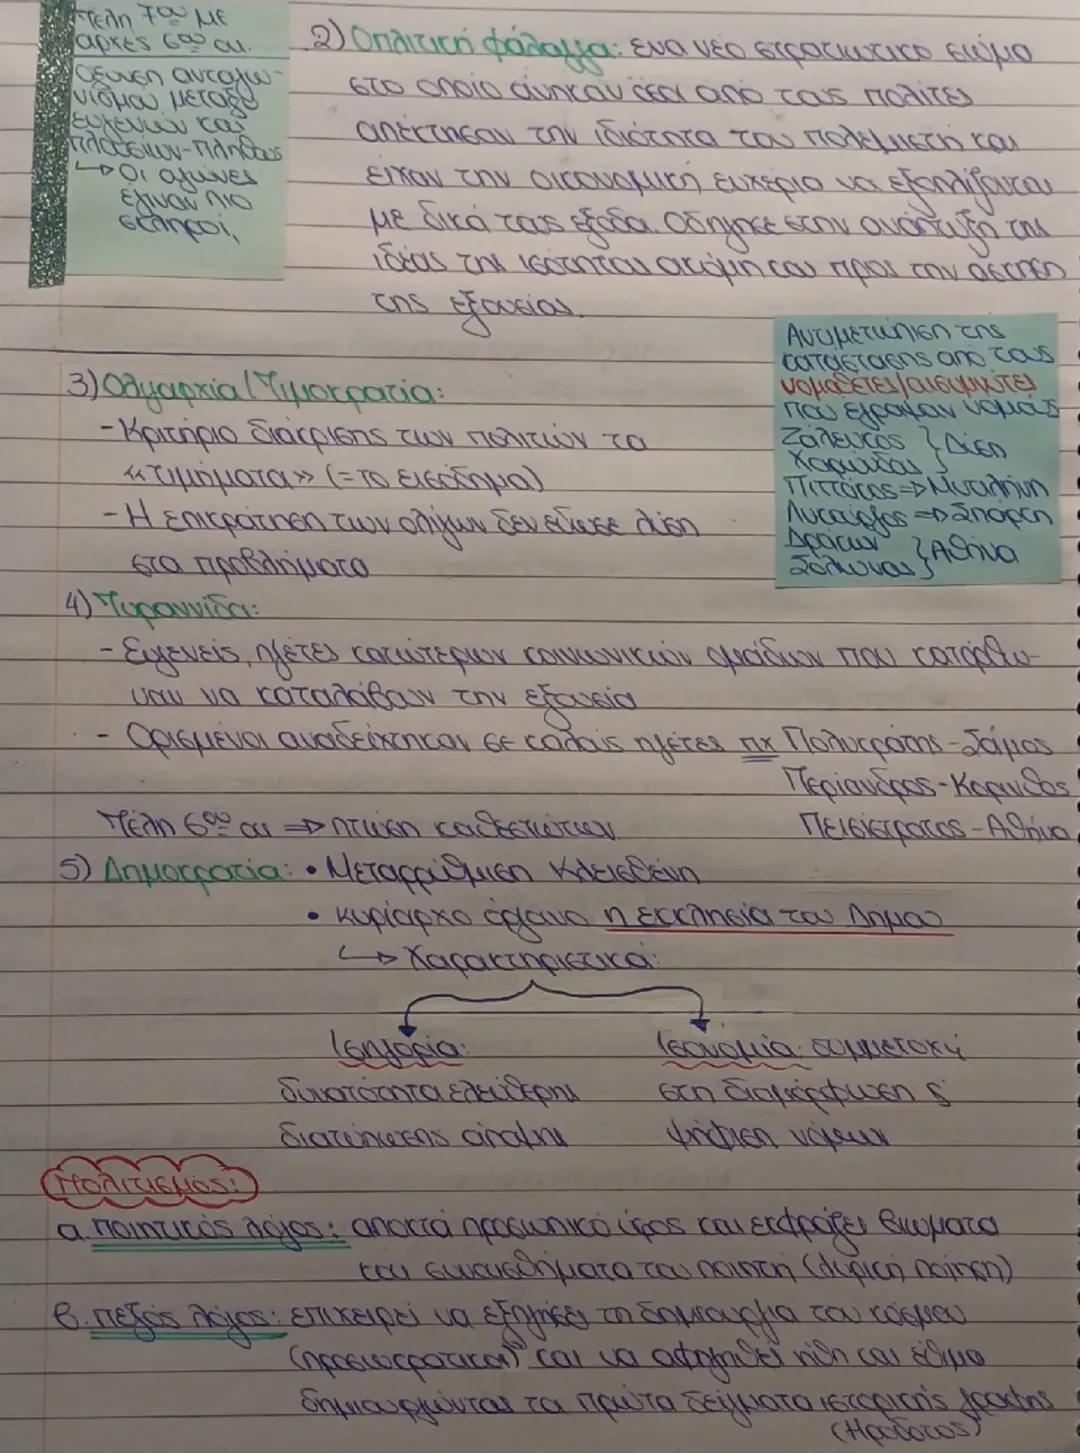 Τέλη 7ου με
αρχές 6ου αι.
Όξυνση ανταγω-
νισμού μεταξύ
ευγενών και
πλούσιων-πλήθους
↳ Οι αγώνες
έγιναν πιο
σκληροί,
2) Οπλιτική φάλαγγα: ένα νέο στρατιωτικό σώμα
στο οποίο ανήκαν όσοι από τους πολίτες
απέκτησαν την ιδιότητα του πολεμιστή και
είχαν την οικονομική ευχέρια να εξοπλίζονται
με δικά τους έξοδα. Οδήγησε στην ανάπτυξη της
ιδέας της ισότητας ακόμη και προς την άσκηση
της εξουσίας.
Αντιμετώπιση της
κατάστασης από τους
νομοθέτες/αισυμνήτες
που έγραψαν νόμους
Ζάλευκος } Δύση
Χαρώνδας
Πιττακός => Μυτιλήνη
Λυκούργος => Σπάρτη
Δράκων } Αθήνα
Σόλωνας
3) Ολιγαρχία/Τιμοκρατία:
- Κριτήριο διάκρισης των πολιτών τα
«τιμήματα» (= το εισόδημα)
- Η επικράτηση των ολίγων δεν έδωσε λύση
στα προβλήματα
4) Τυραννίδα:
- Ευγενείς, ηγέτες κατώτερων κοινωνικών ομάδων που κατόρθω-
ναν να καταλάβουν την εξουσία
- Ορισμένοι αναδείχτηκαν σε καλούς ηγέτες πχ Πολυκράτης-Σάμος
Περίανδρος-Κόρινθος
Πεισίστρατος-Αθήνα
Τέλη 6ου αι => πτώση καθεστώτων
5) Δημοκρατία: • Μεταρρύθμιση Κλεισθένη
• κυρίαρχο όργανο η εκκλησία του Δήμου
↳ Χαρακτηριστικά:
Ισηγορία:
δυνατότητα ελεύθερης
διατύπωσης άποψης
Ισονομία: συμμετοχή
στη διαμόρφωση &
ψήφιση νόμων
Πολιτισμός:
α. ποιητικός λόγος: αποκτά προσωπικό ύφος και εκφράζει βιώματα
και συναισθήματα του ποιητή (λυρική ποίηση)
β. πεζός λόγος: επιχειρεί να εξηγήσει τη δημιουργία του κόσμου
(προσωκρατικοί) και να αφηγηθεί ήθη και έθιμα
δημιουργώντας τα πρώτα δείγματα ιστορικής γραφής
(Ηρόδοτος)